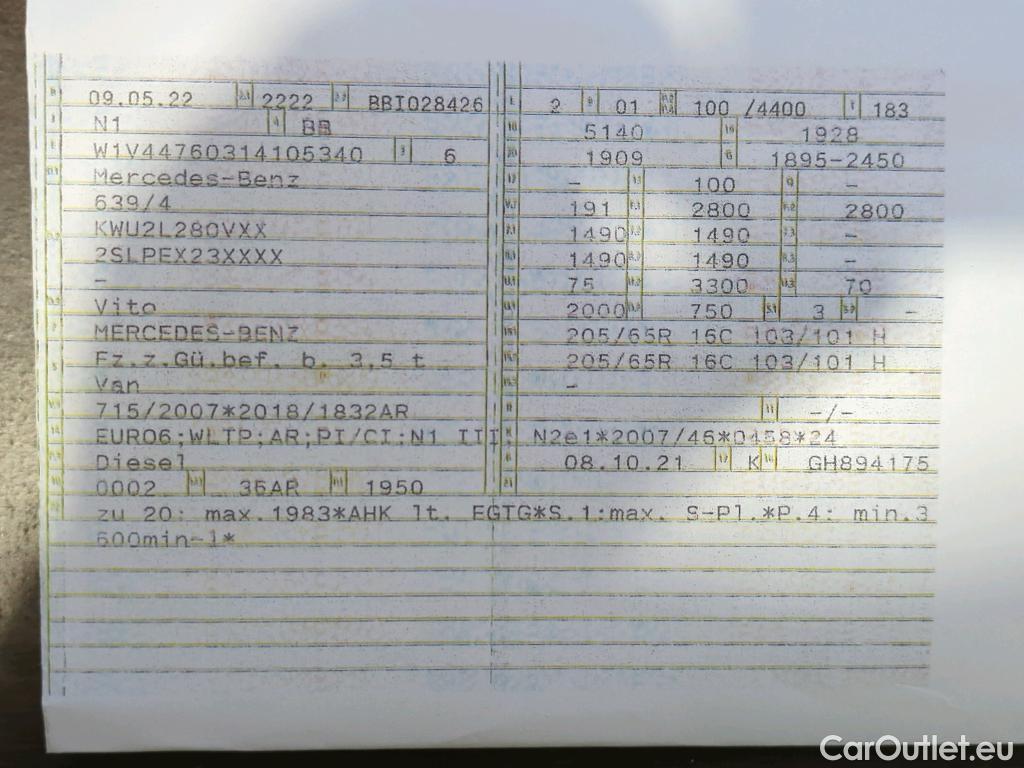 09.05.22 2222 BBI028426
N1 4 BB
W1V44760314105340 3 6
Mercedes-Benz
639/4
KWU2L280VXX
2SLPEX23XXXX
-
Vito
MERCEDES-BENZ
Fz.z.Gü.bef. b. 3,5 t
Van
715/2007*2018/1832AR
EURO6;WLTP;AR;PI/CI;N1 III;
Diesel
0002 36AR 1950
L 2 9 01 100 /4400 T 183
5140 1928
1909 G 1895-2450
- 100 Q -
191 2800 2800
1490 1490 -
1490 1490 -
75 3300 70
2000 750 3 -
205/65R 16C 103/101 H
205/65R 16C 103/101 H
-
R -/-
K N2e1*2007/46*0458*24
6 08.10.21 K GH894175
zu 20: max.1983*AHK lt. EGTG*S.1:max. S-Pl.*P.4: min.3
600min-1*
CarOutlet.eu